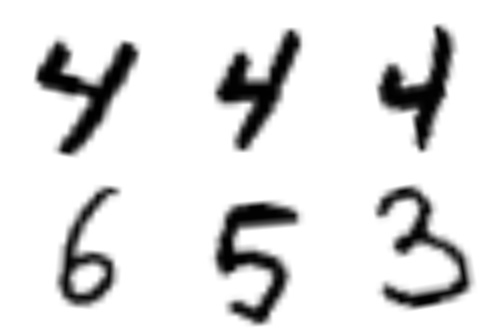 4 4 4
6 5 3